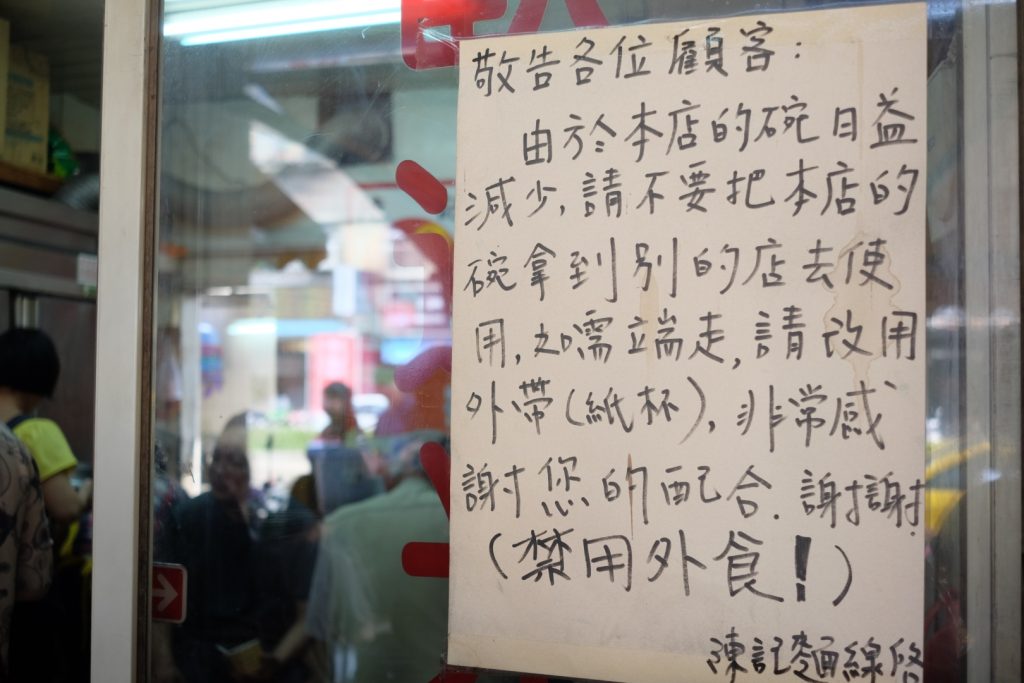 敬告各位顧客：
由於本店的碗日益
減少，請不要把本店的
碗拿到別的店去使
用，如需端走，請改用
外帶(紙杯)，非常感
謝您的配合．謝謝．
（禁用外食！）
陳記麵線啓